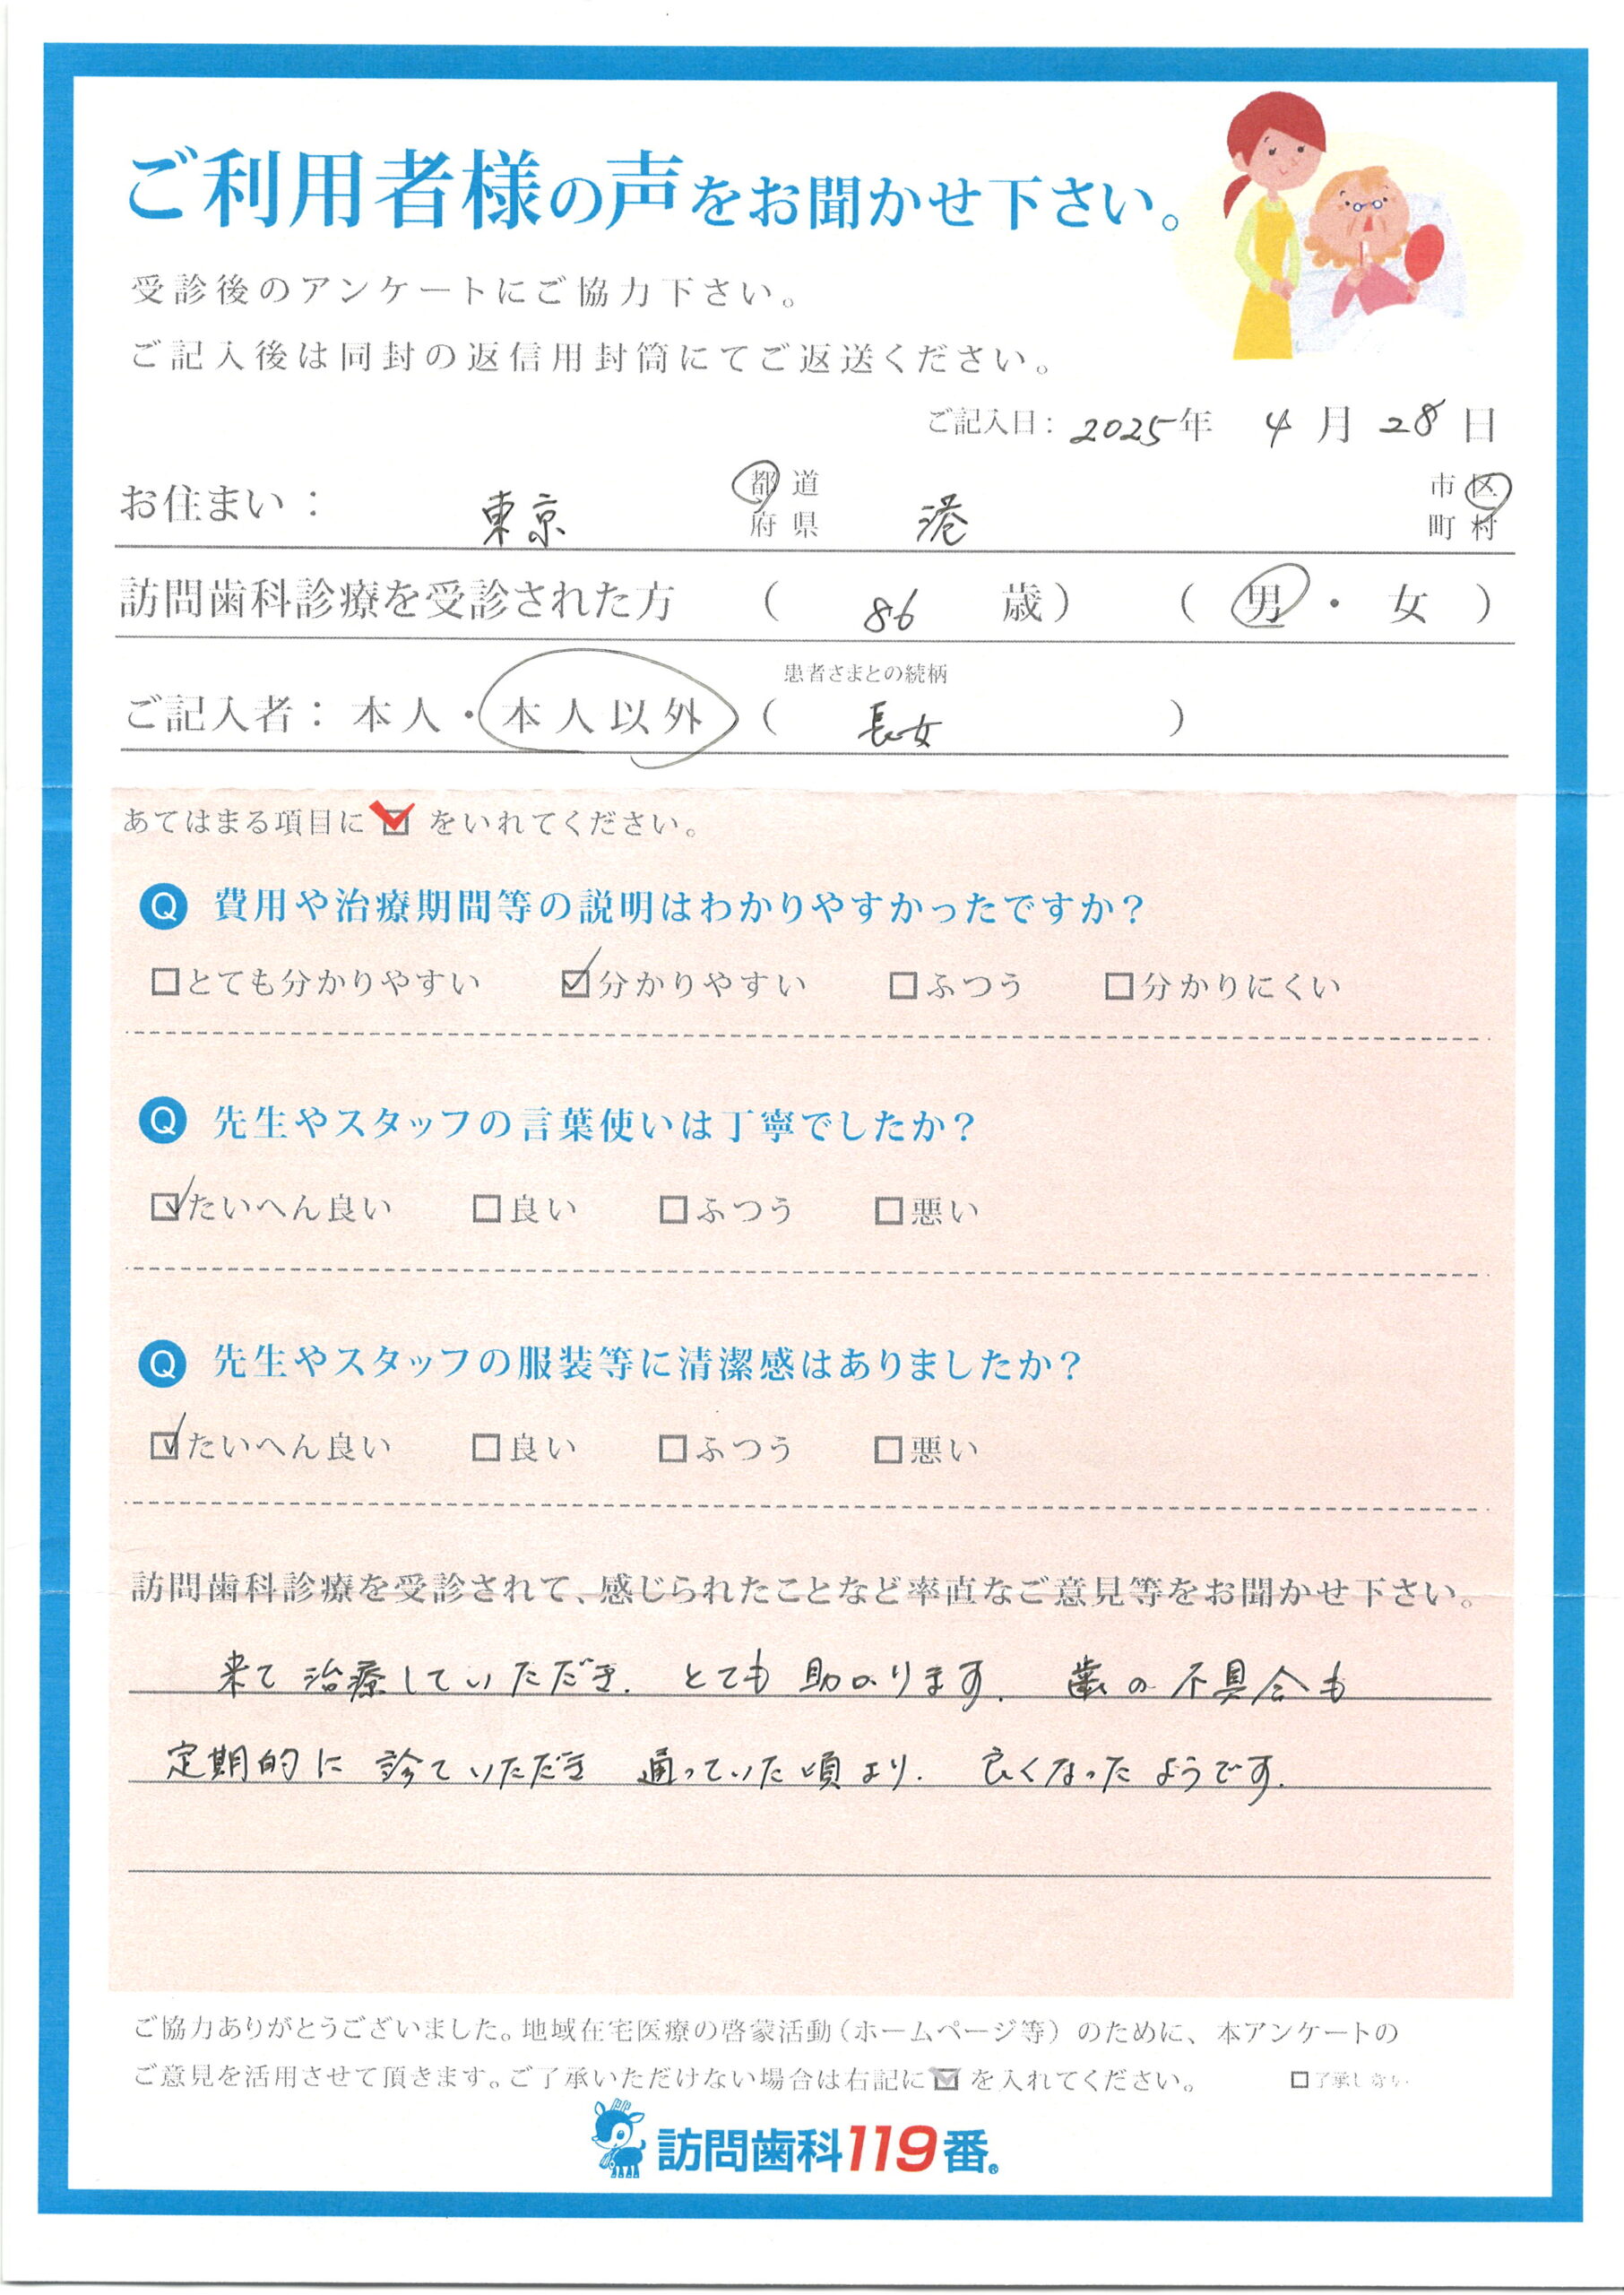 ご利用者様の声をお聞かせ下さい。
受診後のアンケートにご協力下さい。
ご記入後は同封の返信用封筒にてご返送ください。
ご記入日：2025年 4月 28日
お住まい： 東京 都道府県 港 市区町村
訪問歯科診療を受診された方 （ 86 歳） （ 男 ・ 女 ）
患者さまとの続柄
ご記入者：本人・本人以外（ 長女 ）
あてはまる項目に☑をいれてください。
Q 費用や治療期間等の説明はわかりやすかったですか？
□とても分かりやすい ☑分かりやすい □ふつう □分かりにくい
Q 先生やスタッフの言葉使いは丁寧でしたか？
☑たいへん良い □良い □ふつう □悪い
Q 先生やスタッフの服装等に清潔感はありましたか？
☑たいへん良い □良い □ふつう □悪い
訪問歯科診療を受診されて、感じられたことなど率直なご意見等をお聞かせ下さい。
来て治療していただき、とても助かります。歯の不具合も
定期的に診ていただき通っていた頃より、良くなったようです。
ご協力ありがとうございました。地域在宅医療の啓蒙活動（ホームページ等）のために、本アンケートの
ご意見を活用させて頂きます。ご了承いただけない場合は右記に☑を入れてください。 □了承しない
訪問歯科119番®